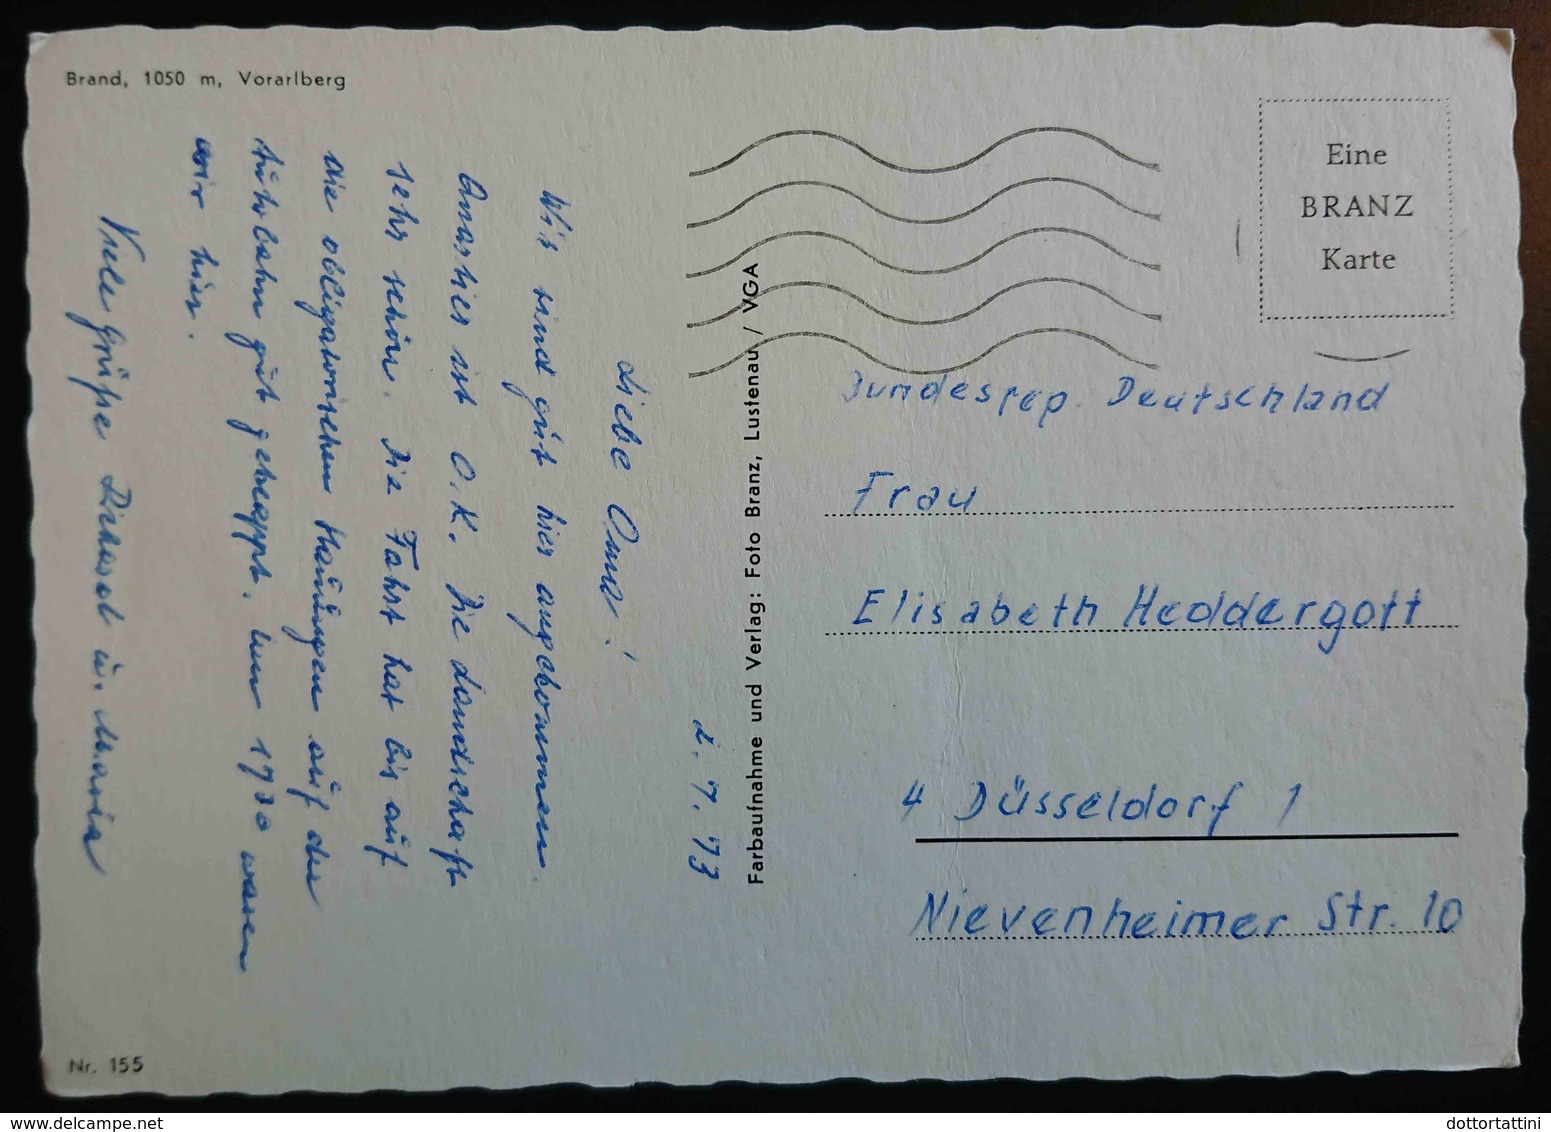 Brand, 1050 m, Vorarlberg
2. 7. 73
Liebe Oma!
Wir sind gut hier angekommen.
Quartier ist O.K. Die Landschaft
sehr schön. Die Fahrt hat bis auf
die obligatorischen Stauungen auf der
Autobahn gut geklappt. Um 1730 waren
wir hier.
Viele Grüße u. Maria
Nr. 155
Farbaufnahme und Verlag: Foto Branz, Lustenau / VGA
Eine
BRANZ
Karte
Bundesrep. Deutschland
Frau
Elisabeth Heddergott
4 Düsseldorf 1
Nievenheimer Str. 10
dottortattini